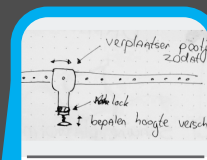 verplaatsen poot
zodat
lock
bepalen hoogte versch